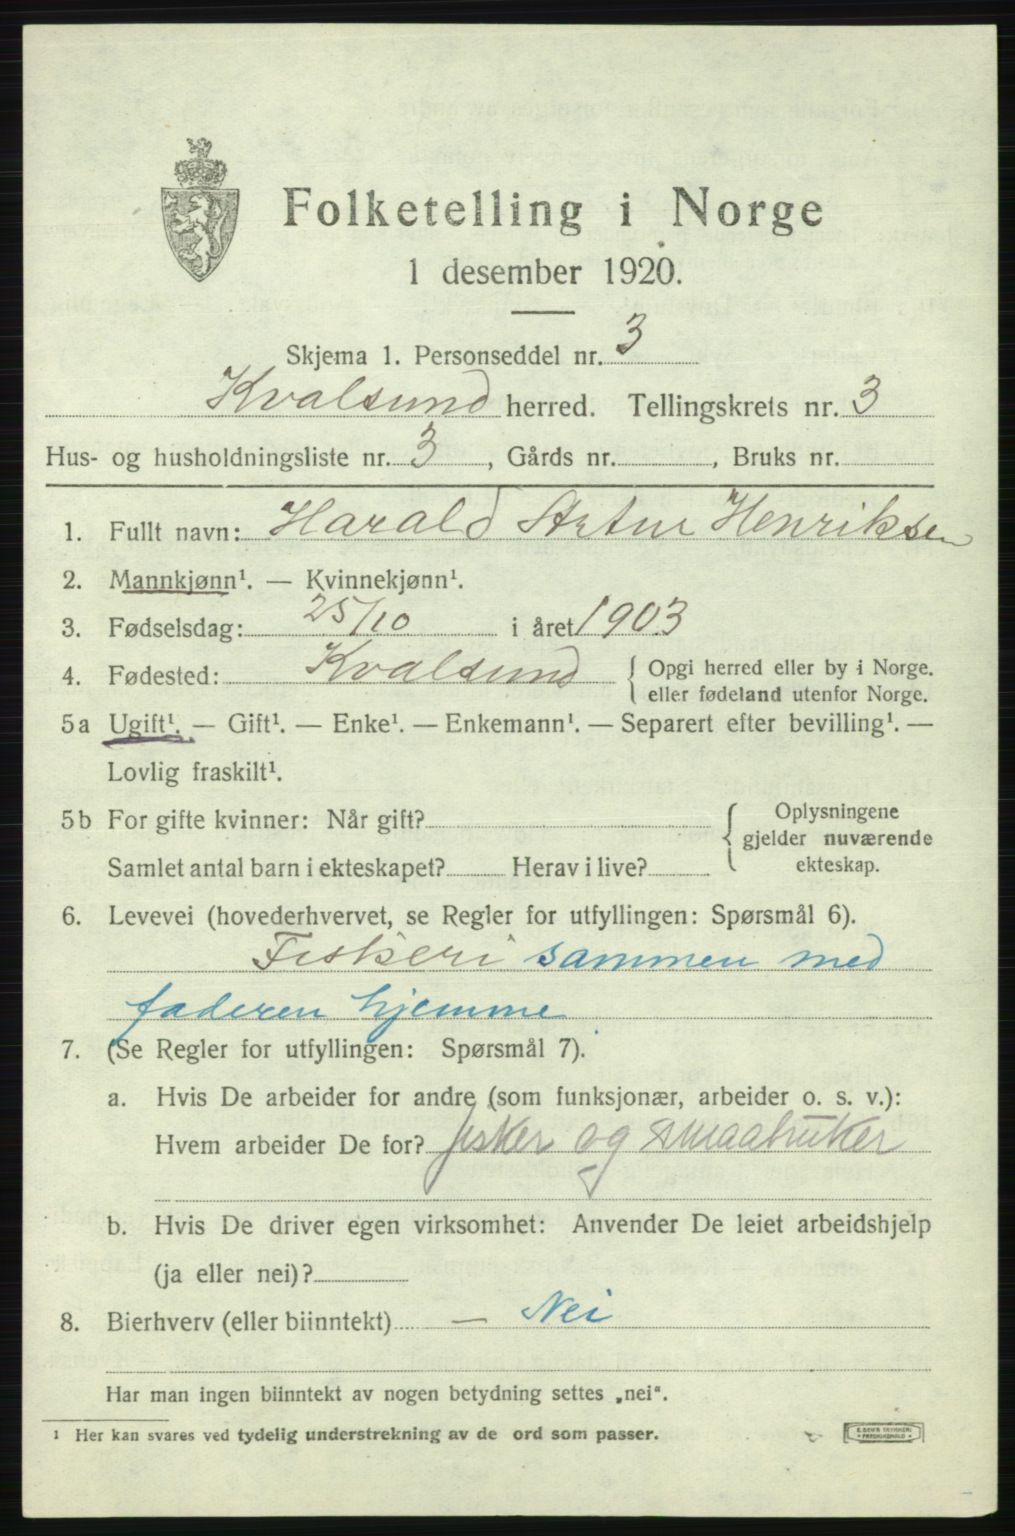 Folketelling i Norge
1 desember 1920.
Skjema 1. Personseddel nr. 3
Kvalsund herred. Tellingskrets nr. 3
Hus- og husholdningsliste nr. 3, Gårds nr. , Bruks nr.
1. Fullt navn: Harald Artur Henriksen
2. Mannkjønn¹. — Kvinnekjønn¹.
3. Fødselsdag: 25/10 i året 1903
4. Fødested: Kvalsund { Opgi herred eller by i Norge.
eller fødeland utenfor Norge.
5a Ugift¹. — Gift¹. — Enke¹. — Enkemann¹. — Separert efter bevilling¹. —
Lovlig fraskilt¹.
5b For gifte kvinner: Når gift? { Oplysningene
gjelder nuværende
Samlet antal barn i ekteskapet? Herav i live? ekteskap.
6. Levevei (hovederhvervet, se Regler for utfyllingen: Spørsmål 6).
Fiskeri sammen med
faderen hjemme
7. (Se Regler for utfyllingen: Spørsmål 7).
a. Hvis De arbeider for andre (som funksjonær, arbeider o. s. v.):
Hvem arbeider De for? fisker og smaabruker
b. Hvis De driver egen virksomhet: Anvender De leiet arbeidshjelp
(ja eller nei)?
8. Bierhverv (eller biinntekt) — Nei
Har man ingen biinntekt av nogen betydning settes „nei“.
¹ Her kan svares ved tydelig understrekning av de ord som passer.